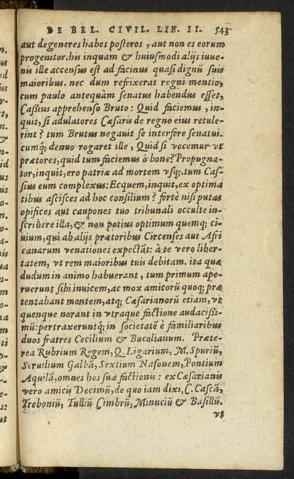 DE BEL. CIVIL. LIB. II. 543
aut degeneres habes posteros, aut non es eorum
progenitor. his inquam & huiusmodi alijs iuue-
nis ille accensus est ad facinus quasi dignū suis
maioribus. nec dum refixerat regni mentio,
cum paulo antequàm senatus habendus esset,
Cassius apprehenso Bruto: Quid faciemus, in-
quit, si adulatores Cæsaris de regno eius retule-
rint? tum Brutus negauit se interfore senatui.
cumq; denuo rogaret ille, Quid si vocemur vt
prætores, quid tum faciemus ô bone? Propugna-
tor, inquit, ero patriæ ad mortem vsq;. tum Cas-
sius eum complexus; Ecquem, inquit, ex optima
tibus ascisces ad hoc consilium? fortè nisi putas
opifices aut caupones tuo tribunali occultè in-
scribere illa, & non potius optimum quemq; ci-
uium, qui ab alijs prætoribus Circenses aut Afri
canarum venationes expectāt: à te verò liber-
tatem, vt rem maioribus tuis debitam. ita quæ
dudum in animo habuerant, tum primum ape-
ruerunt sibi inuicem, ac mox amicorū quoq; præ
tentabant mentem, atq; Cæsarianorū etiam, vt
quenque norant in vtraque factione audacissi-
mū: pertraxeruntq; in societatē è familiaribus
duos fratres Cecilium & Bucolianum. Præte-
rea Rubrium Regem, Q. Ligarium, M. Spuriū,
Seruilium Galbā, Sextium Nasonem, Pontium
Aquilā, omnes hos suæ factionis: ex Cæsarianis
verò amicis Decimū, de quo iam dixi, C. Cascā,
Treboniū, Tulliū Cimbrū, Minuciū & Basillū.